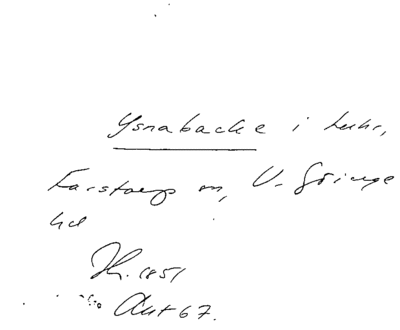 Ysnabacke i Luhr,
Farstorps sn, V. Göinge
hd
H. 1851
Aut 67.